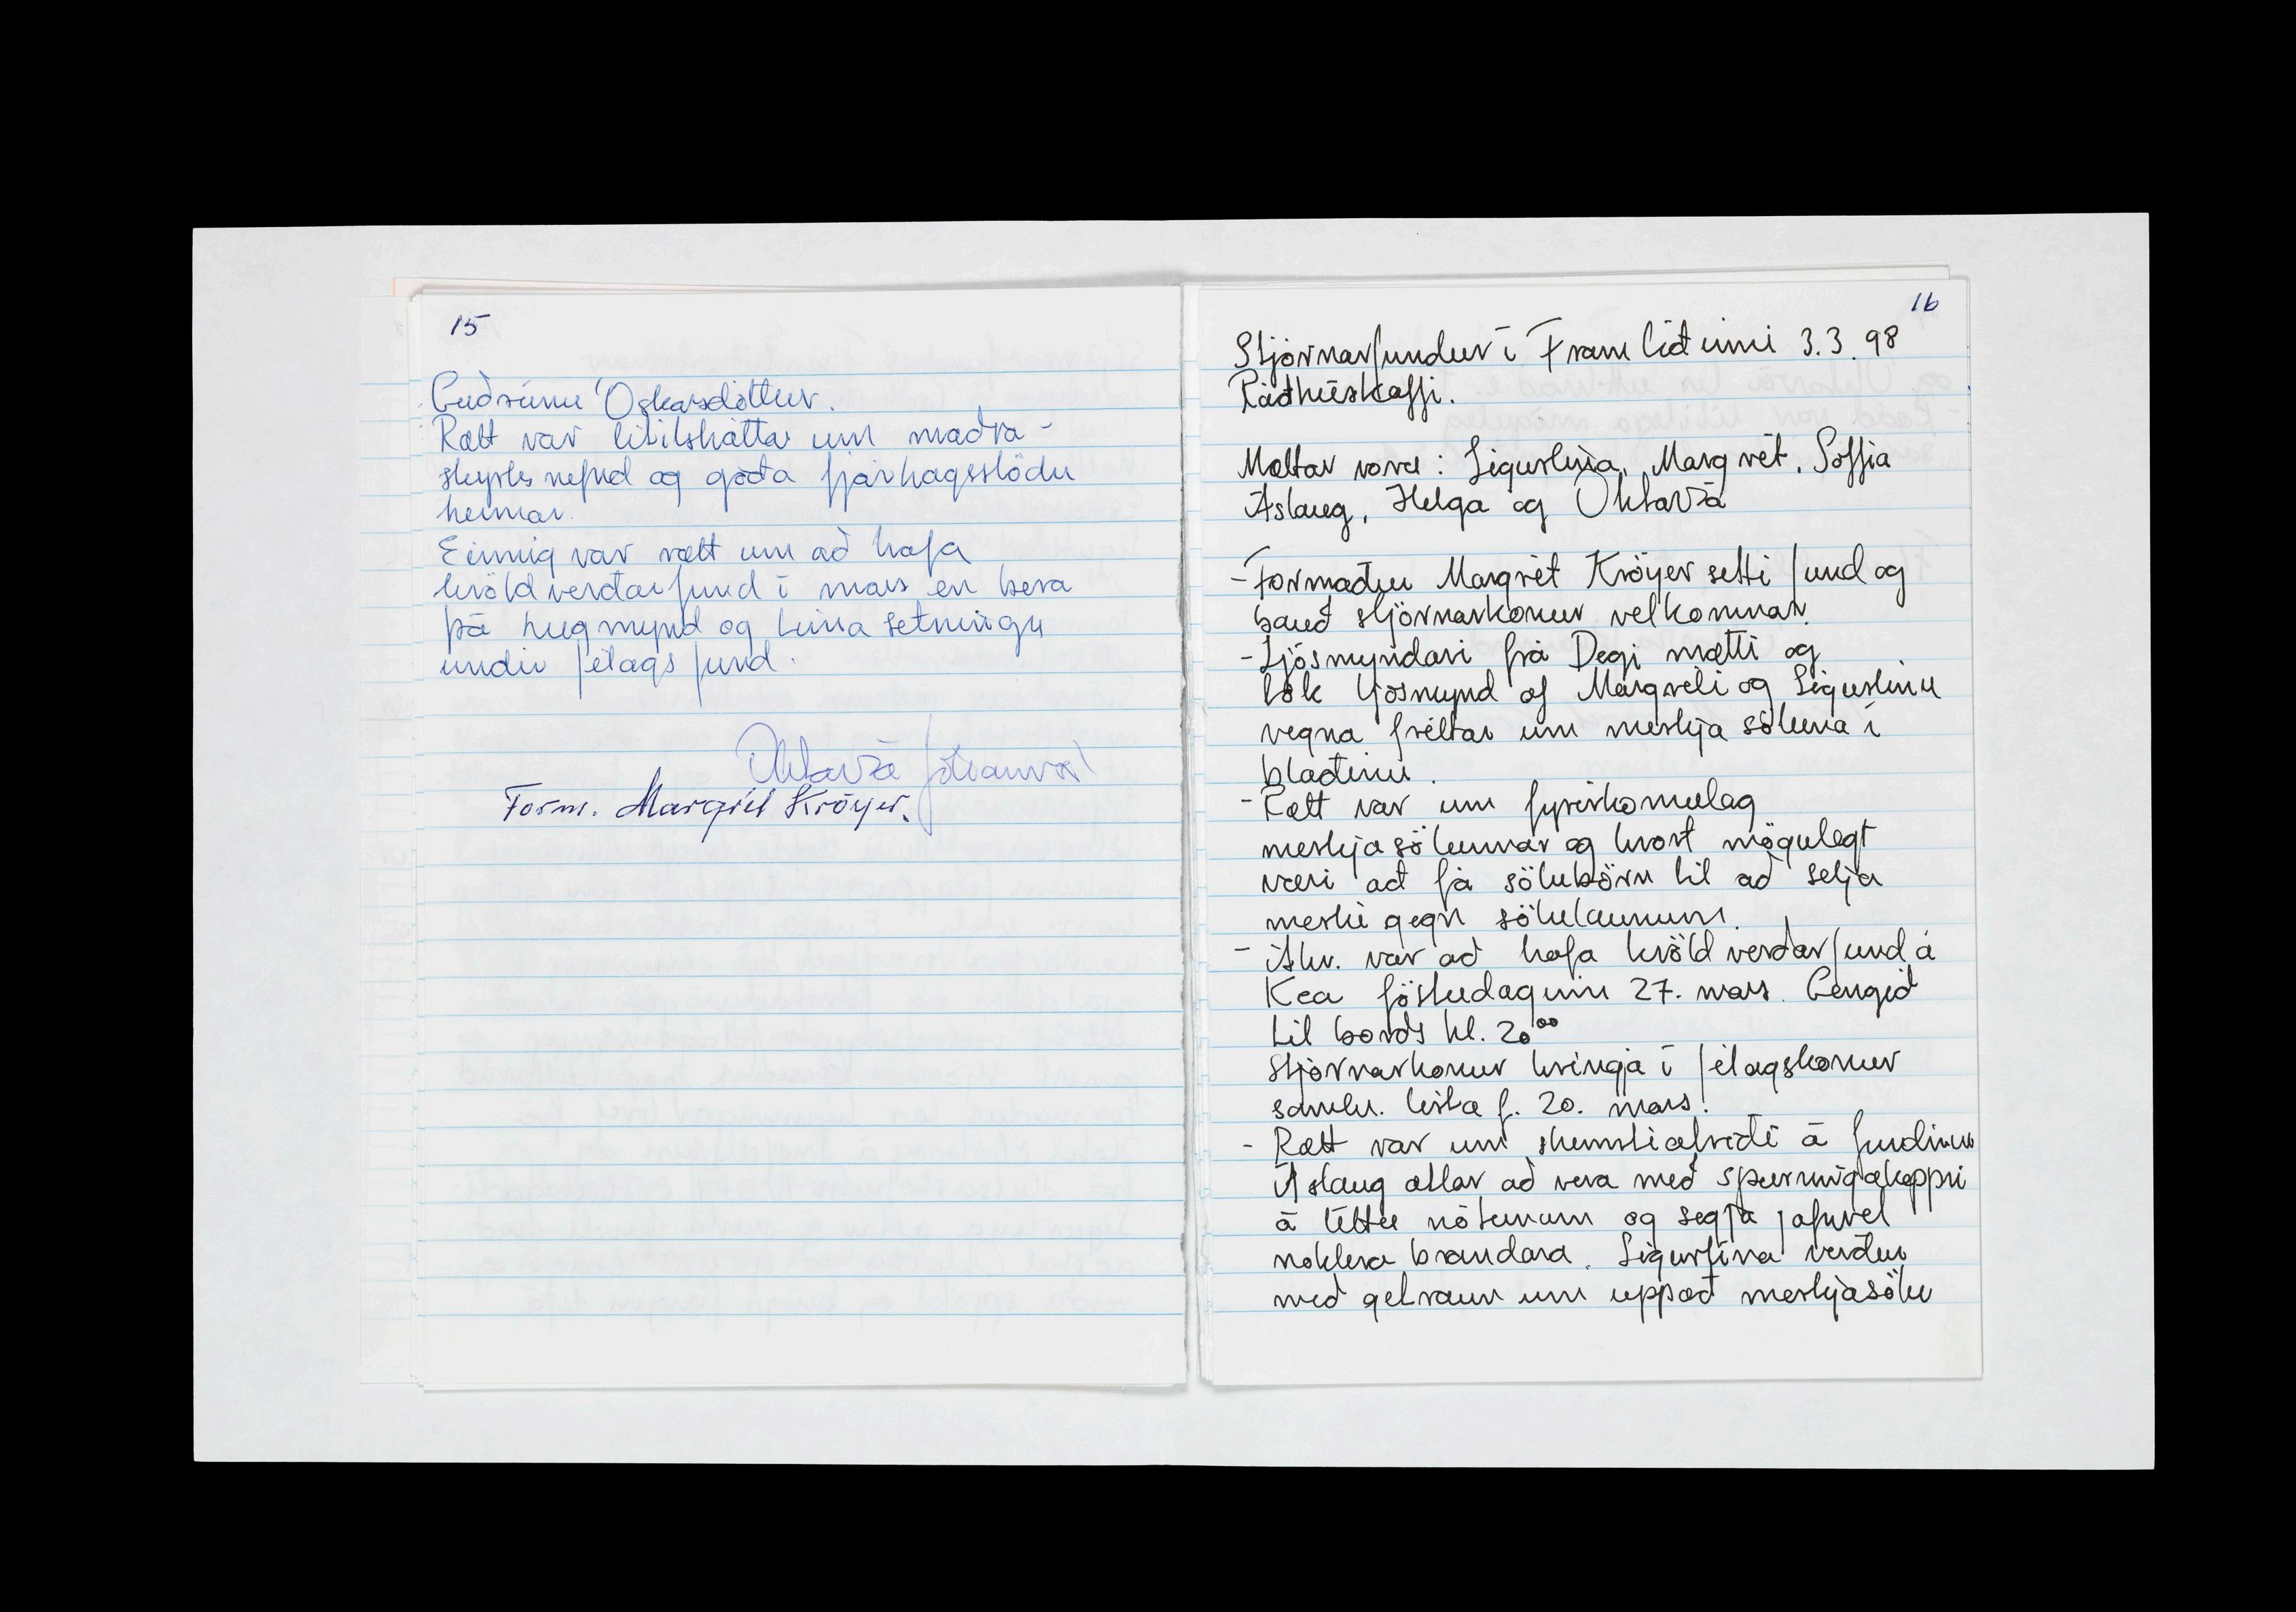 15
Guðrúnu Óskarsdóttur.
Rætt var lítilsháttar um mæðra-
styrks nefnd og góða fjárhagsstöðu
hennar.
Einnig var rætt um að hafa
kvöldverðarfund í mars en bera
þá hugmynd og hina setningu
undir félagsfund.
Oktavía Jóhannesd
Form. Margrét Kröyer.
16
Stjórnarfundur í Framtíðinni 3.3.98
Ráðhúskaffi.
Mættar voru: Sigurlína, Margrét, Soffía
Áslaug, Helga og Oktavía
- Formaður Margrét Kröyer setti fund og
bauð stjórnarkonur velkomnar.
- Ljósmyndari frá Degi mætti og
tók ljósmynd af Margréti og Sigurlínu
vegna fréttar um merkja söluna í
blaðinu.
- Rætt var um fyrirkomulag
merkjasölunnar og hvort mögulegt
væri að fá sölubörn til að selja
merki gegn sölulaunum.
- Ákv. var að hafa kvöldverðarfund á
Kea föstudaginn 27. mars. Gengið
til borðs kl. 20⁰⁰
Stjórnarkonur hringja í félagskonur
samkv. lista f. 20. mars.
- Rætt var um skemmtiatriði á fundinum
Áslaug ætlar að vera með spurningakeppni
á léttu nótunum og segja jafnvel
nokkra brandara. Sigurlína verður
með getraun um uppáð merkjasölu